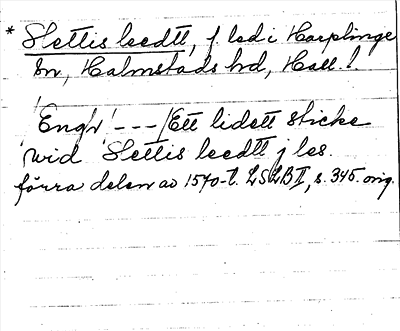 * Slettis leedtt, f. led i Harplinge
sn, Halmstads hd, Hall. l.
'Engh' --- / Ett lidett sticke
wid Slettis leedtt j les.
förra delen av 1570-t. LSLB II, s. 345. orig.